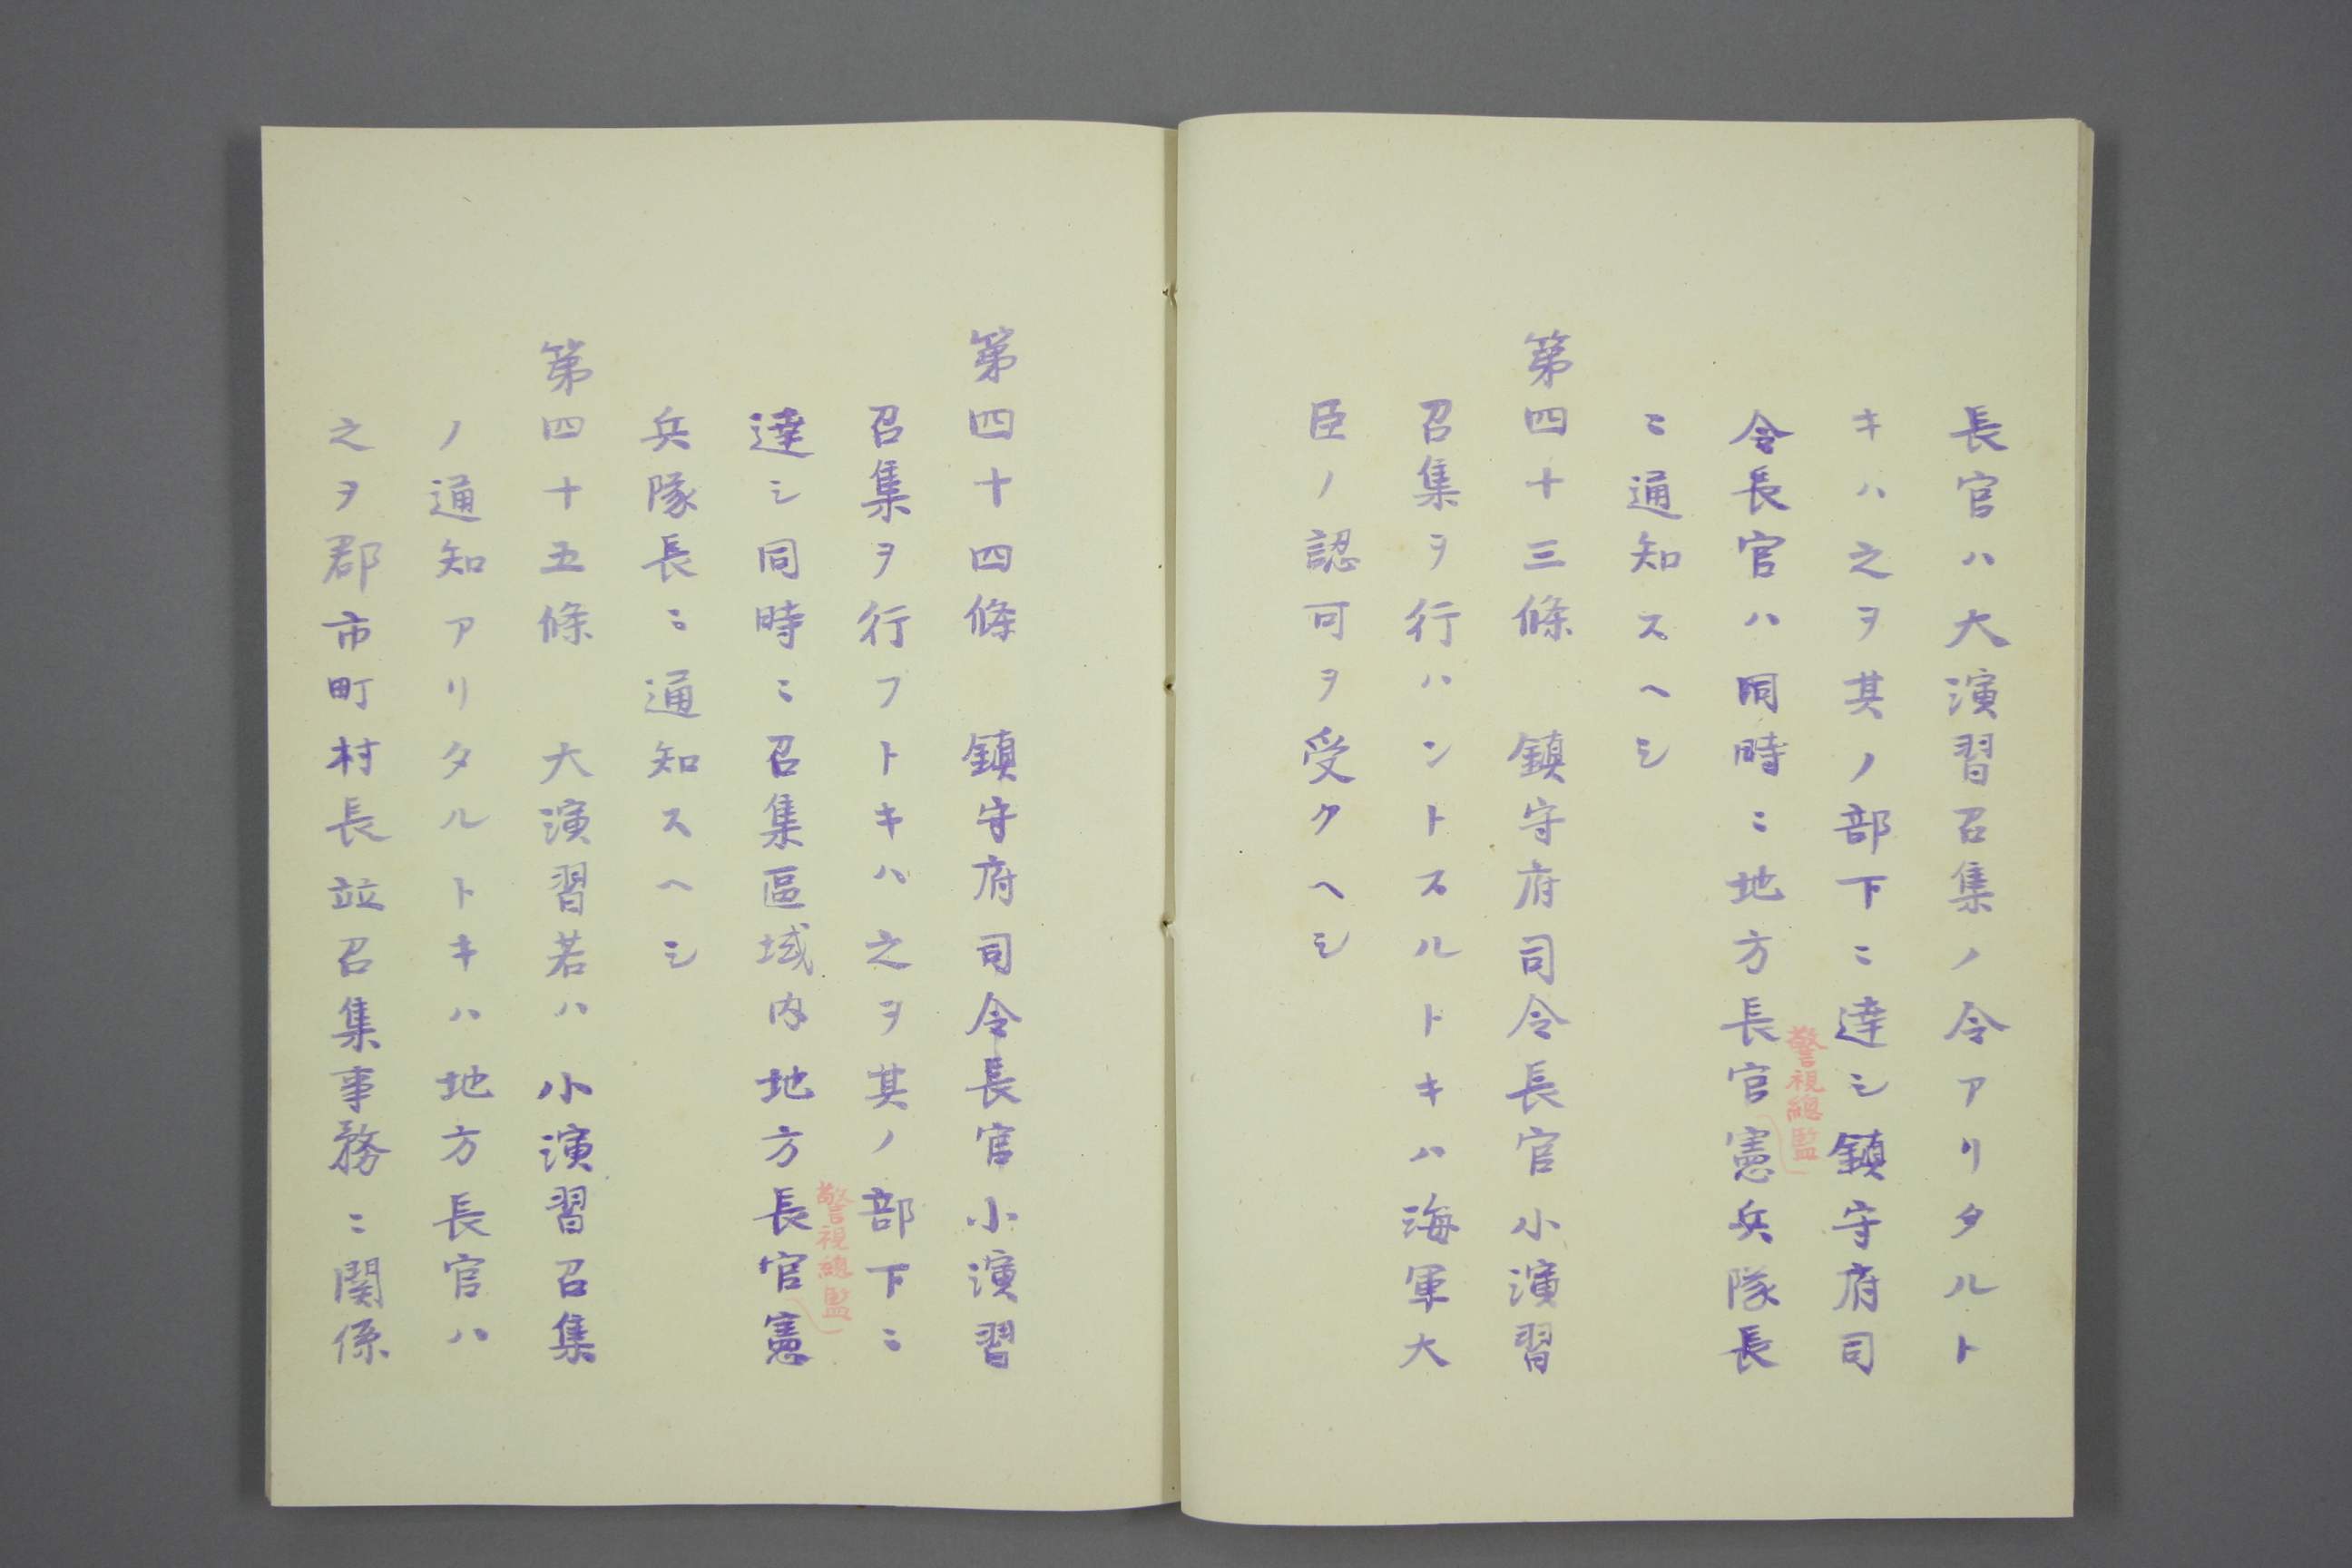 長官ハ大演習召集ノ令アリタルト
キハ之ヲ其ノ部下ニ達シ鎮守府司
令長官ハ同時ニ地方長官憲兵隊長
警視總監
ニ通知スヘシ
第四十三條 鎮守府司令長官小演習
召集ヲ行ハントスルトキハ海軍大
臣ノ認可ヲ受クヘシ
第四十四條 鎮守府司令長官小演習
召集ヲ行フトキハ之ヲ其ノ部下ニ
達シ同時ニ召集區域内地方長官憲
警視總監
兵隊長ニ通知スヘシ
第四十五條 大演習若ハ小演習召集
ノ通知アリタルトキハ地方長官ハ
之ヲ郡市町村長竝召集事務ニ関係